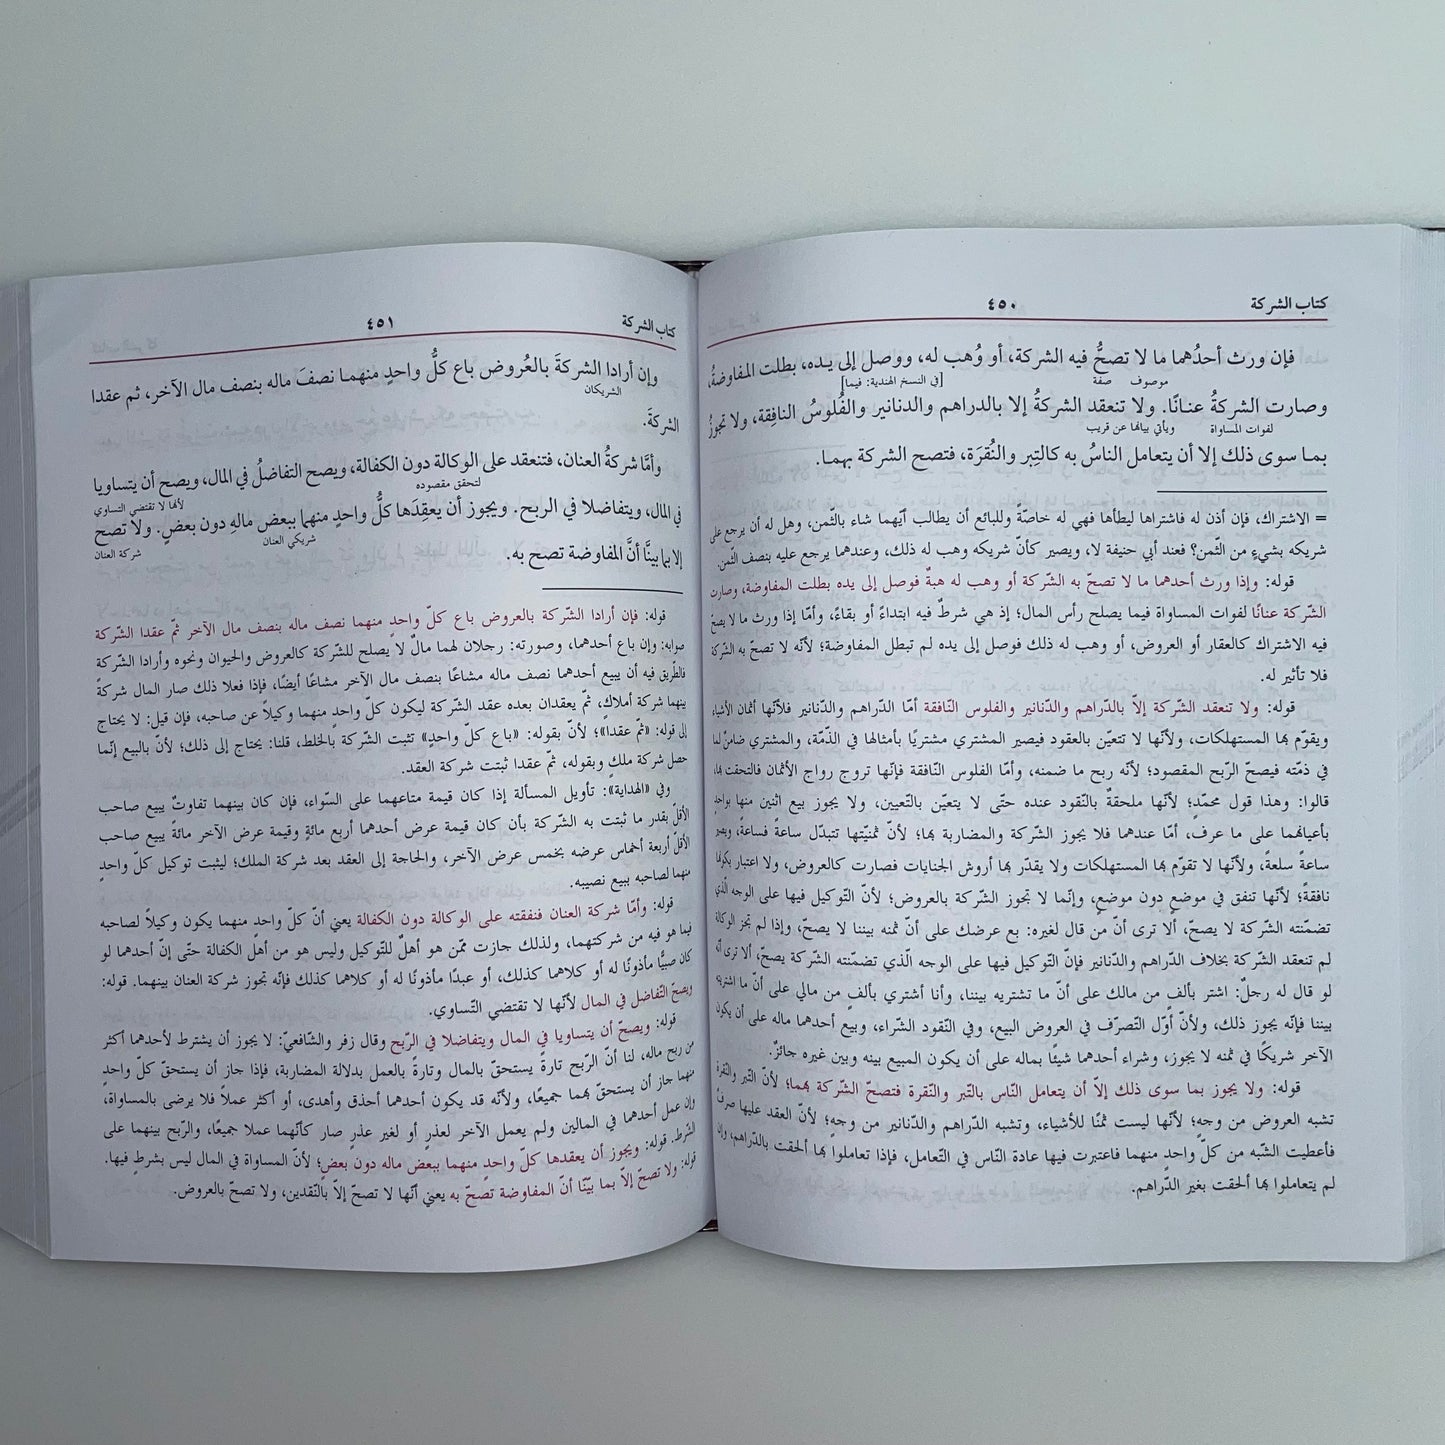 كتاب الشركة
٤٥٠
فإن ورث أحدُهما ما لا تصحُّ فيه الشركة، أو وُهب له، ووصل إلى يده، بطلت المفاوضةُ،
موصوف صفة [في النسخ الهندية: فيما]
وصارت الشركةُ عنانًا. ولا تنعقد الشركةُ إلا بالدراهم والدنانير والفُلوسُ النافِقة، ولا تجوزُ
لفوات المساواة ويأتي بيانها عن قريب
بما سوى ذلك إلا أن يتعامل الناسُ به كالتِبر والنُقرَة، فتصح الشركة بهما.
= الاشتراك، فإن أذن له فاشتراها ليطأها فهي له خاصّةً وللبائع أن يطالب أيّهما شاء بالثّمن، وهل له أن يرجع على
شريكه بشيءٍ من الثّمن؟ فعند أبي حنيفة لا، ويصير كأنّ شريكه وهب له ذلك، وعندهما يرجع عليه بنصف الثّمن.
قوله: وإذا ورث أحدهما ما لا تصحّ به الشّركة أو وهب له هبةً فوصل إلى يده بطلت المفاوضة، وصارت
الشّركة عنانًا لفوات المساواة فيما يصلح رأس المال؛ إذ هي شرطٌ فيه ابتداءً أو بقاءً، وأمّا إذا ورث ما لا يصحّ
فيه الاشتراك كالعقار أو العروض، أو وهب له ذلك فوصل إلى يده لم تبطل المفاوضة؛ لأنّه لا تصحّ به الشّركة
فلا تأثير له.
قوله: ولا تنعقد الشّركة إلاّ بالدّراهم والدّنانير والفلوس النّافقة أمّا الدّراهم والدّنانير فلأنّها أثمان الأشياء
ويقوّم بها المستهلكات، ولأنّها لا تتعيّن بالعقود فيصير المشتري مشتريًا بأمثالها في الذّمّة، والمشتري ضامنٌ لما
في ذمّته فيصحّ الرّبح المقصود؛ لأنّه ربح ما ضمنه، وأمّا الفلوس النّافقة فإنّها تروج رواج الأثمان فالتحقت بها،
قالوا: وهذا قول محمّدٍ؛ لأنّها ملحقةٌ بالنّقود عنده حتّى لا يتعيّن بالتّعيين، ولا يجوز بيع اثنين منها بواحدٍ
بأعيانهما على ما عرف، أمّا عندهما فلا يجوز الشّركة والمضاربة بها؛ لأنّ ثمنيّتها تتبدّل ساعةً فساعةً، ويصير
ساعةً سلعةً، ولأنّها لا تقوّم بها المستهلكات ولا يقدّر بها أروش الجنايات فصارت كالعروض، ولا اعتبار بكونها
نافقةً؛ لأنّها تنفق في موضعٍ دون موضعٍ، وإنّما لا تجوز الشّركة بالعروض؛ لأنّ التّوكيل فيها على الوجه الّذي
تضمّنته الشّركة لا يصحّ، ألا ترى أنّ من قال لغيره: بع عرضك على أنّ ثمنه بيننا لا يصحّ، وإذا لم تجز الوكالة
لم تنعقد الشّركة بخلاف الدّراهم والدّنانير فإنّ التّوكيل فيها على الوجه الّذي تضمّنته الشّركة يصحّ، ألا ترى أنّه
لو قال له رجلٌ: اشتر بألفٍ من مالك على أنّ ما تشتريه بيننا، وأنا أشتري بألفٍ من مالي على أنّ ما اشتريه
بيننا فإنّه يجوز ذلك، ولأنّ أوّل التّصرّف في العروض البيع، وفي النّقود الشّراء، وبيع أحدهما ماله على أن يكون
الآخر شريكًا في ثمنه لا يجوز، وشراء أحدهما شيئًا بماله على أن يكون المبيع بينه وبين غيره جائزٌ.
قوله: ولا يجوز بما سوى ذلك إلاّ أن يتعامل النّاس بالتّبر والنّقرة فتصحّ الشّركة بهما؛ لأنّ التّبر والنّقرة
تشبه العروض من وجهٍ؛ لأنّها ليست ثمنًا للأشياء، وتشبه الدّراهم والدّنانير من وجهٍ؛ لأنّ العقد عليها صرفٌ
فأعطيت الشّبه من كلّ واحدٍ منهما فاعتبرت فيها عادة النّاس في التّعامل، فإذا تعاملوا بها ألحقت بالدّراهم، وإن
لم يتعاملوا بها ألحقت بغير الدّراهم.
كتاب الشركة
٤٥١
وإن أرادا الشركةَ بالعُروض باع كلُّ واحدٍ منهما نصفَ ماله بنصف مال الآخر، ثم عقدا
الشريكان
الشركةَ.
وأمَّا شركةُ العنان، فتنعقد على الوكالة دون الكفالة، ويصح التفاضلُ في المال، ويصح أن يتساويا
لتحقق مقصوده لأنها لا تقتضي التساوي
في المال، ويتفاضلا في الربح. ويجوز أن يعقِدَها كلُّ واحدٍ منهما ببعض مالهِ دون بعضٍ. ولا تصح
شريكي العنان شركة العنان
إلا بما بينَّا أنَّ المفاوضة تصح به.
قوله: فإن أرادا الشّركة بالعروض باع كلّ واحدٍ منهما نصف ماله بنصف مال الآخر ثمّ عقدا الشّركة
صوابه: وإن باع أحدهما، وصورته: رجلان لهما مالٌ لا يصلح للشّركة كالعروض والحيوان ونحوه وأرادا الشّركة
فالطّريق فيه أن يبيع أحدهما نصف ماله مشاعًا بنصف مال الآخر مشاعًا أيضًا، فإذا فعلا ذلك صار المال شركةً
بينهما شركة أملاكٍ، ثمّ يعقدان بعده عقد الشّركة ليكون كلّ واحدٍ منهما وكيلاً عن صاحبه، فإن قيل: لا يحتاج
إلى قوله: «ثمّ عقدا»؛ لأنّ بقوله: «باع كلّ واحدٍ» تثبت الشّركة بالخلط، قلنا: يحتاج إلى ذلك؛ لأنّ بالبيع إنّما
حصل شركة ملكٍ وبقوله، ثمّ عقدا ثبتت شركة العقد.
وفي «الهداية»: تأويل المسألة إذا كان قيمة متاعهما على السّواء، فإن كان بينهما تفاوتٌ يبيع صاحب
الأقلّ بقدر ما ثبتت به الشّركة بأن كان قيمة عرض أحدهما أربع مائةٍ وقيمة عرض الآخر مائةً يبيع صاحب
الأقلّ أربعة أخماس عرضه بخمس عرض الآخر، والحاجة إلى العقد بعد شركة الملك؛ ليثبت توكيل كلّ واحدٍ
منهما لصاحبه ببيع نصيبه.
قوله: وأمّا شركة العنان فنفقته على الوكالة دون الكفالة يعني أنّ كلّ واحدٍ منهما يكون وكيلاً لصاحبه
فيما هو فيه من شركتهما، ولذلك جازت ممّن هو أهلٌ للتّوكيل وليس هو من أهل الكفالة حتّى إنّ أحدهما لو
كان صبيًّا مأذونًا له أو كلاهما كذلك، أو عبدًا مأذونًا له أو كلاهما كذلك فإنّه تجوز شركة العنان بينهما. قوله:
ويصحّ التّفاضل في المال لأنّها لا تقتضي التّساوي.
قوله: ويصحّ أن يتساويا في المال ويتفاضلا في الرّبح وقال زفر والشّافعيّ: لا يجوز أن يشترط لأحدهما أكثر
من ربح ماله، لنا أنّ الرّبح تارةً يستحقّ بالمال وتارةً بالعمل بدلالة المضاربة، فإذا جاز أن يستحقّ كلّ واحدٍ
منهما جاز أن يستحقّ بهما جميعًا، ولأنّه قد يكون أحدهما أحذق وأهدى، أو أكثر عملاً فلا يرضى بالمساواة،
وإن عمل أحدهما في المالين ولم يعمل الآخر لعذرٍ أو لغير عذرٍ صار كأنّهما عملا جميعًا، والرّبح بينهما على
الشّرط. قوله: ويجوز أن يعقدها كلّ واحدٍ منهما ببعض ماله دون بعضٍ؛ لأنّ المساواة في المال ليس بشرطٍ فيها.
قوله: ولا تصحّ إلاّ بما بيّنّا أنّ المفاوضة تصحّ به يعني أنّها لا تصحّ إلاّ بالنّقدين، ولا تصحّ بالعروض.